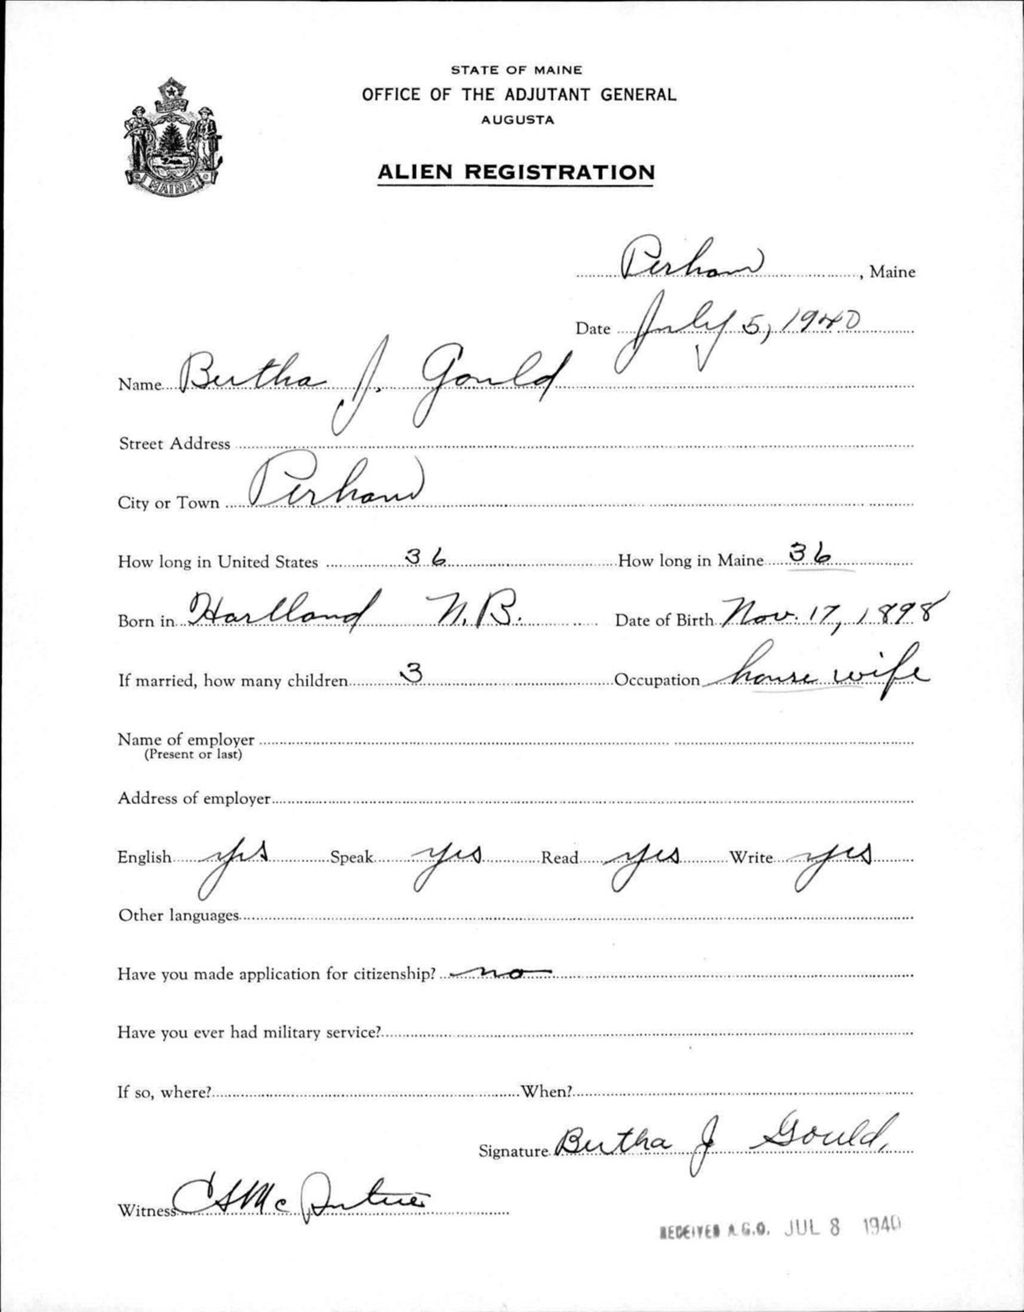 STATE OF MAINE
OFFICE OF THE ADJUTANT GENERAL
AUGUSTA
ALIEN REGISTRATION
MAINE
Perham, Maine
Date July 5, 1940
Name Bertha J. Gould
Street Address
City or Town Perham
How long in United States 36 How long in Maine 36
Born in Hartland N.B. Date of Birth Nov. 17, 1898
If married, how many children 3 Occupation house wife
Name of employer
(Present or last)
Address of employer
English yes Speak yes Read yes Write yes
Other languages
Have you made application for citizenship? no
Have you ever had military service?
If so, where? When?
Signature Bertha J Gould,
Witness
RECEIVED A.G.O. JUL 8 1940